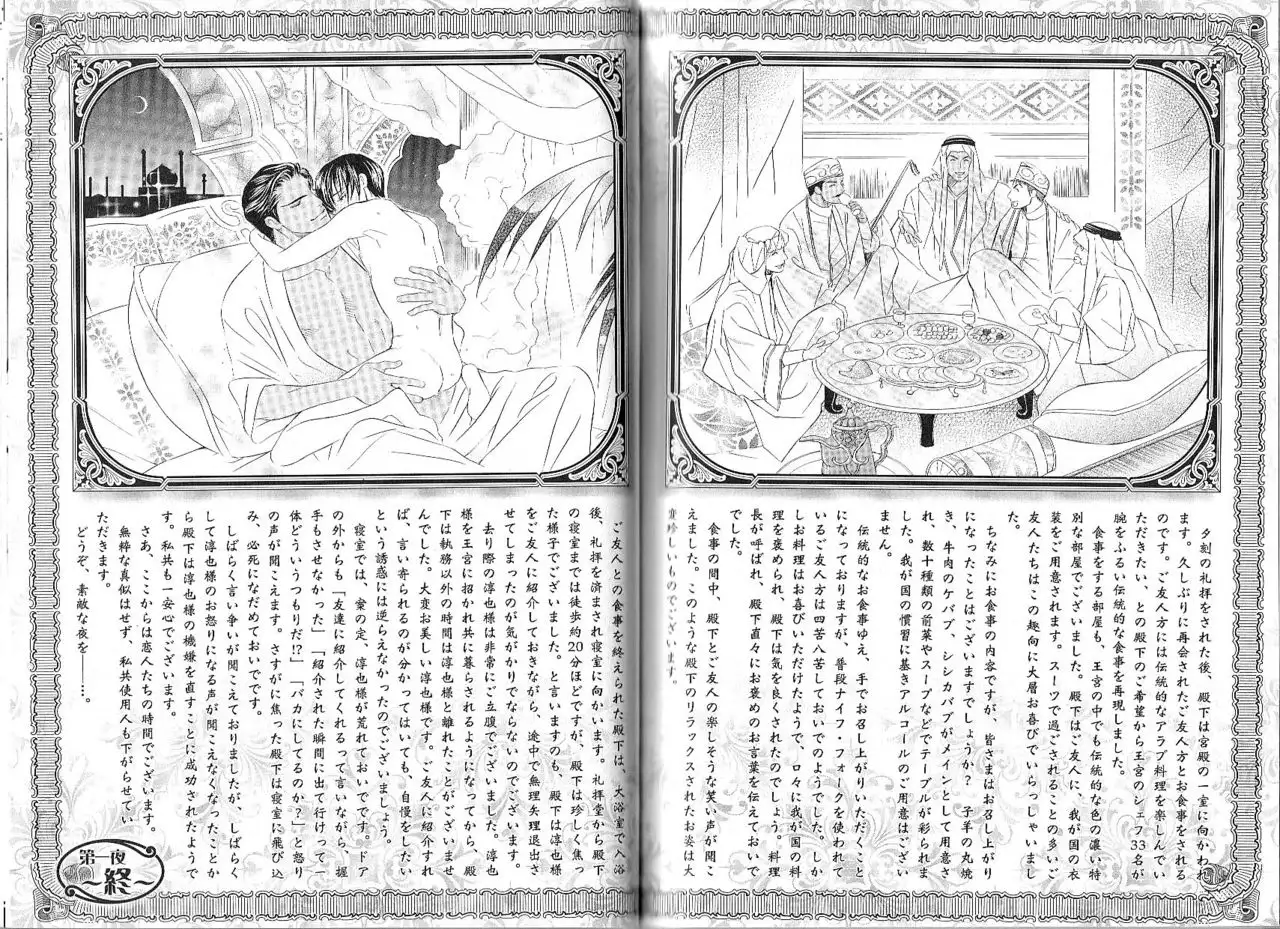 夕刻の礼拝をされた後、殿下は宮殿の一室に向かわれ
ます。久しぶりに再会されたご友人方とお食事をされる
のです。ご友人方には伝統的なアラブ料理を楽しんでい
ただきたい、との殿下のご希望から王宮のシェフ33名が
腕をふるい伝統的な食事を再現しました。
食事をする部屋も、王宮の中でも伝統的な色の濃い特
別な部屋でございました。殿下はご友人に、我が国の衣
装をご用意されます。スーツで過ごされることの多いご
友人たちはこの趣向に大層お喜びでいらっしゃいまし
た。
ちなみにお食事の内容ですが、皆さまはお召し上がり
になったことはございますでしょうか? 子羊の丸焼
き、牛肉のケバブ、シシカバブがメインとして用意さ
れ、数十種類の前菜やスープなどでテーブルが彩られま
した。我が国の慣習に基きアルコールのご用意はござい
ません。
伝統的なお食事ゆえ、手でお召し上がりいただくこと
になっておりますが、普段ナイフ・フォークを使われて
いるご友人方は四苦八苦しておいでのようでした。しか
しお料理はお喜びいただけたようで、口々に我が国の料
理を褒められ、殿下は気を良くされたのでしょう。料理
長が呼ばれ、殿下直々にお褒めのお言葉を伝えておいで
でした。
食事の間中、殿下とご友人の楽しそうな笑い声が聞こ
えました。このような殿下のリラックスされたお姿は大
変珍しいものでございます。
ご友人との食事を終えられた殿下は、大浴室で入浴
後、礼拝を済まされ寝室に向かいます。礼拝堂から殿下
の寝室までは徒歩約20分ほどですが、殿下は珍しく焦っ
た様子でございました。と言いますのも、殿下は淳也様
をご友人に紹介しておきながら、途中で無理矢理退出さ
せてしまったのが気がかりでならないのでございます。
去り際の淳也様は非常にご立腹でございました。淳也
様を王宮に招かれ共に暮らされるようになってから、殿
下は執務以外の時間は淳也様と離れたことがございませ
んでした。大変お美しい淳也様です。ご友人に紹介すれ
ば、言い寄られるのが分かってはいても、自慢をしたい
という誘惑には逆らえなかったのでございましょう。
寝室では、案の定、淳也様が荒れておいでです。ドア
の外からも「友達に紹介してくれるって言いながら、握
手もさせなかった」「紹介された瞬間に出て行けって一
体どういうつもりだ!?」「バカにしてるのか?」と怒り
の声が聞こえます。さすがに焦った殿下は寝室に飛び込
み、必死になだめておいでです。
しばらく言い争いが聞こえておりましたが、しばらく
して淳也様のお怒りになる声が聞こえなくなったことか
ら殿下は淳也様の機嫌を直すことに成功されたようで
す。私共も一安心でございます。
さあ、ここからは恋人たちの時間でございます。
無粋な真似はせず、私共使用人も下がらせてい
ただきます。
どうぞ、素敵な夜を——…。
第一夜
～終～